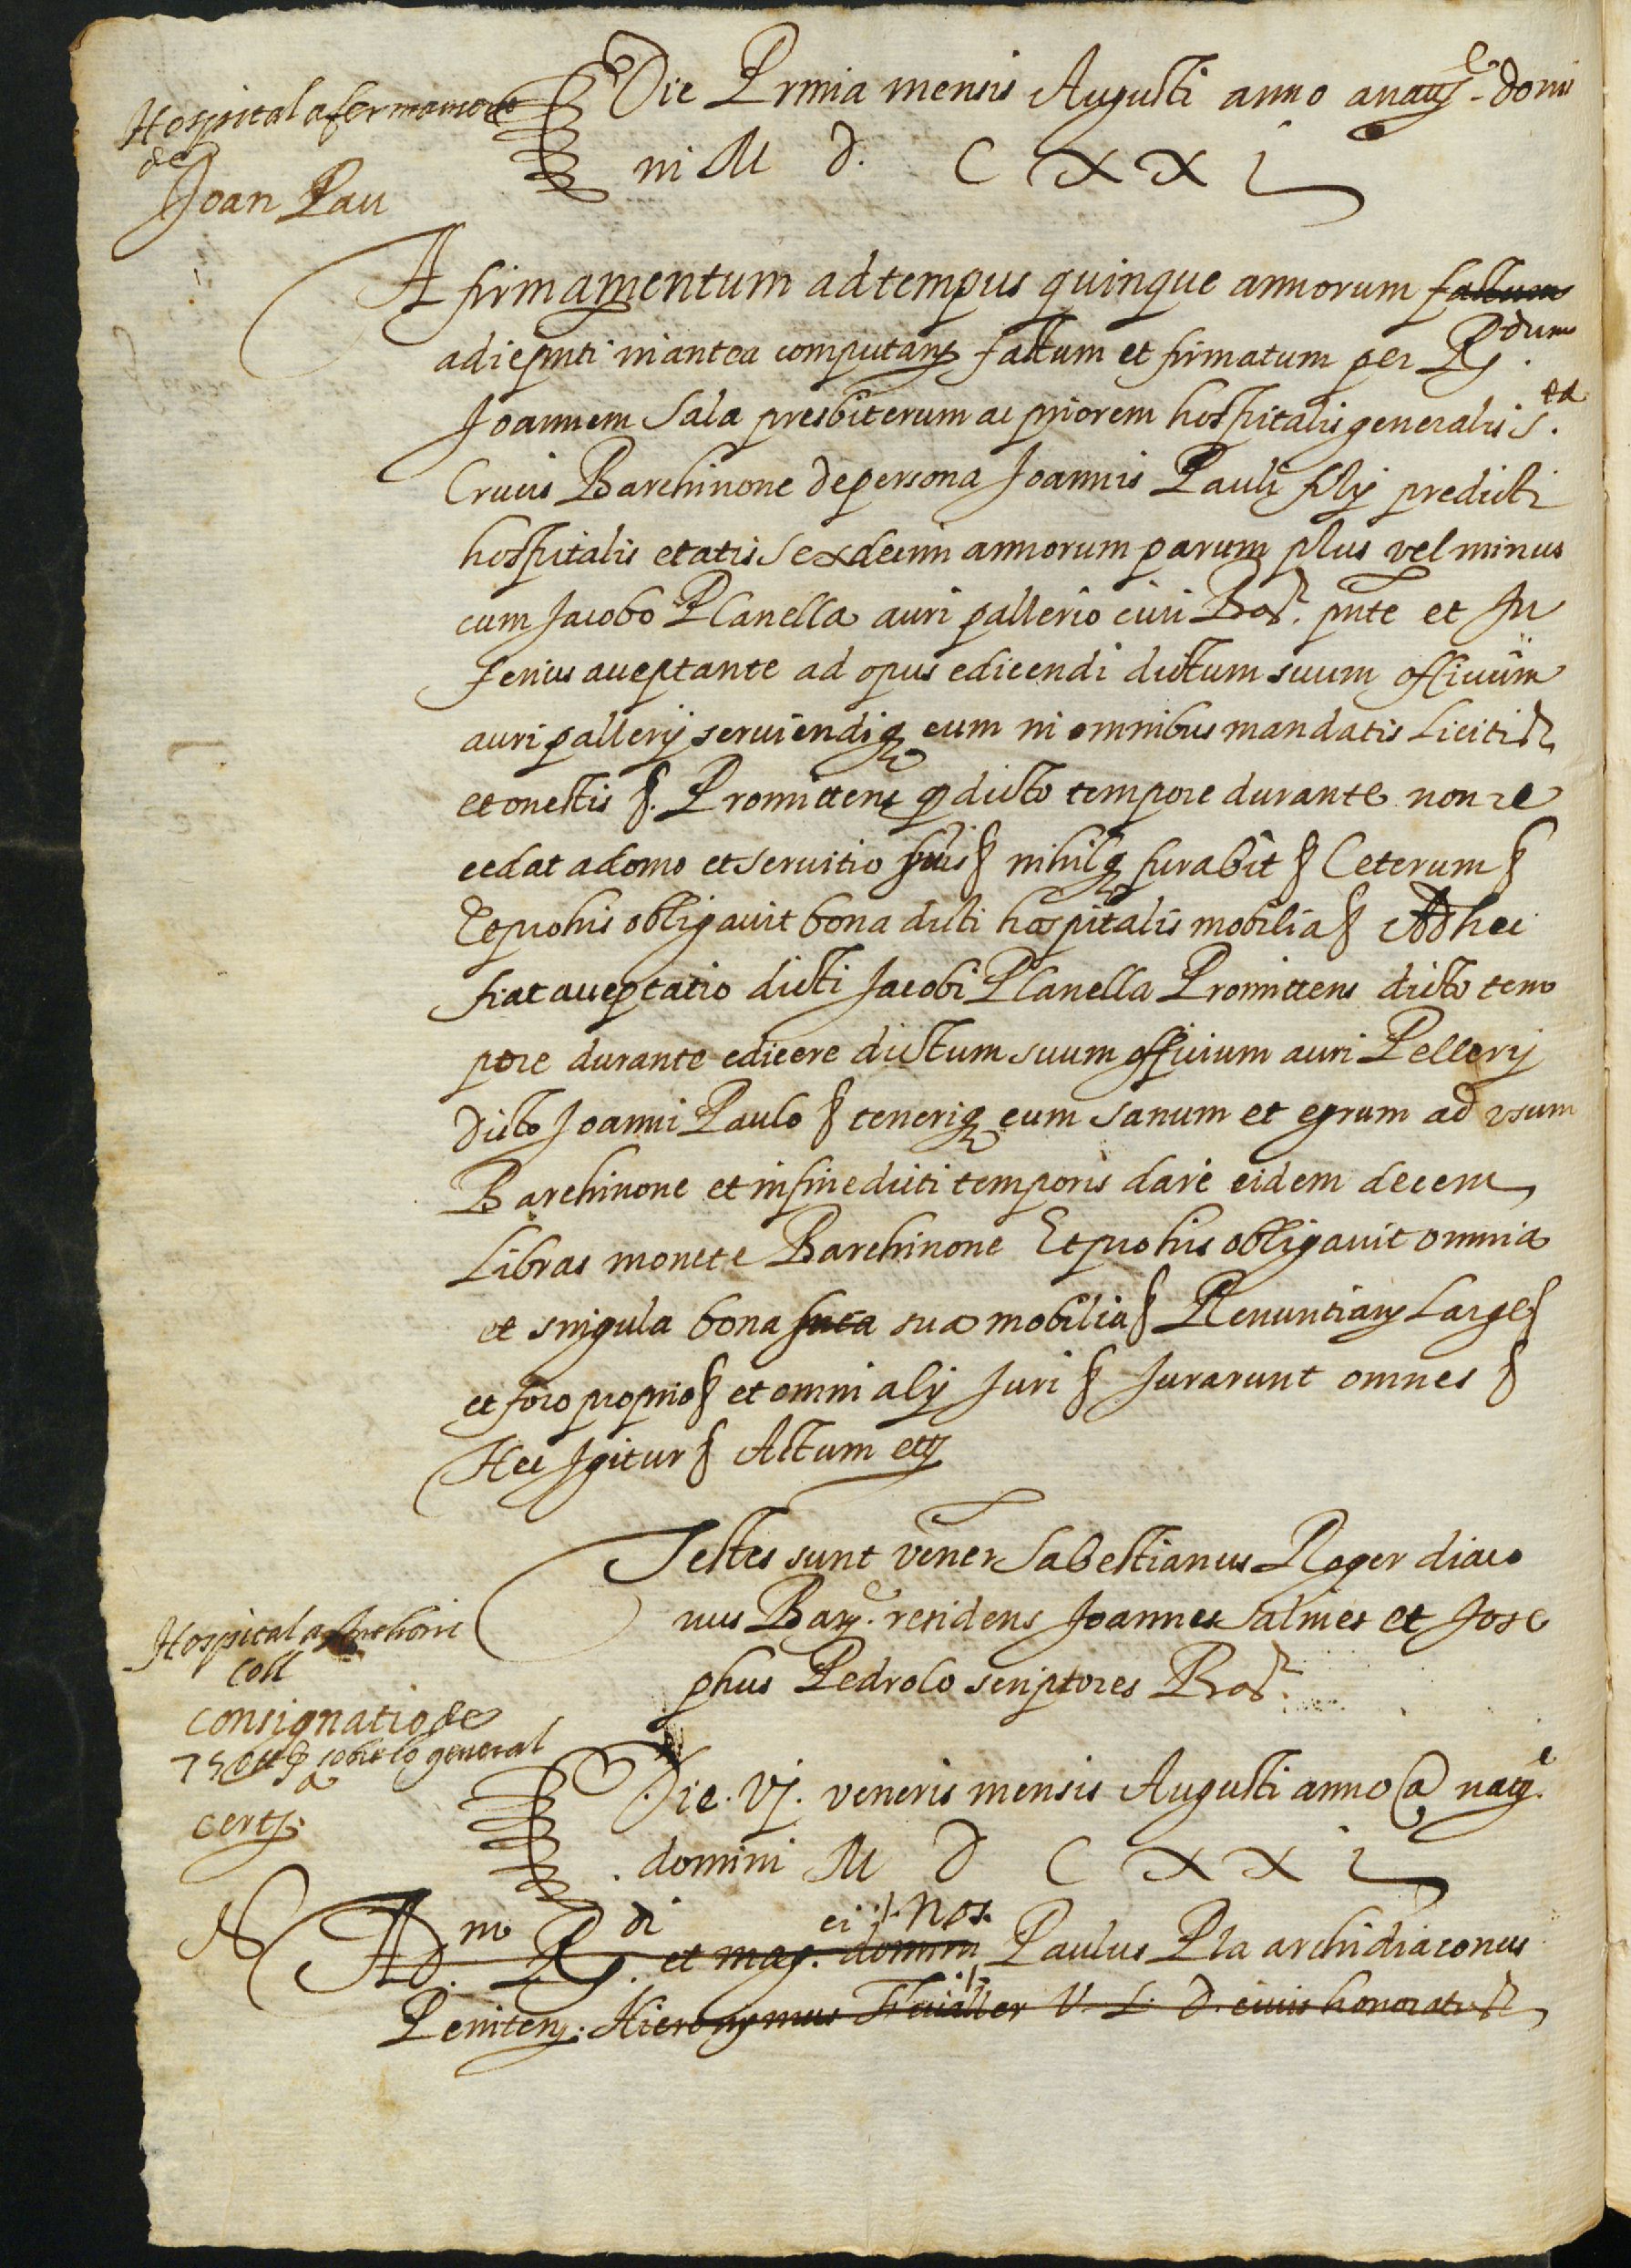 Hospital afermament
de
Joan Pau
Die Prima mensis Augusti anno a natte domi
ni M D. C X X i
Afirmamentum ad tempus quinque annorum factum
a die pnti in antea computan factum et firmatum per R.dum
Joannem Sala presbiterum ac priorem hospitalis generalis S.ta
Crucis Barchinone de persona Joannis Pauli filij predicti
hospitalis etatis sexdecim annorum parum plus vel minus
cum Jacobo Planella auri pallerio civi Bar. pnte et in
ferius acceptante ad opus edicendi dictum suum officium
auri pallerij serviendiq eum in omnibus mandatis licitis
et onestis &. Promittens q dicto tempore durante non re
cedat a domo et servitio & nihilq furabit & Ceterum &
Et pro his obligavit bona dicti hospitalis mobilia & Ad hec
fiat acceptatio dicti Jacobi Planella Promittens dicto tem
pore durante edicere dictum suum officium auri Pellerij
dicto Joanni Paulo & teneriq eum sanum et egrum ad usum
Barchinone et in fine dicti temporis dare eidem decem
Libras monete Barchinone Et pro his obligavit omnia
et singula bona sua mobilia & Renuntians Large &
et foro proprio & et omni alij Juri & Jurarunt omnes &
Hec Igitur & Actum ett
Testes sunt vener Sabestianus Roger diaco
nus Bar. residens Joannes Salmes et Jose
phus Pedrolo scriptores Bar.
Hospital a Anthoni
Coll
Consignatio de
75 sobre lo general
a
cert
Die. vj. veneris mensis Augusti anno a natte
domini M D C X X i
Ad.m R.di et mag.ci domini Nos. Paulus Pla archidiaconus
Peniten. Hieronymus V. J. D. civis honoratus